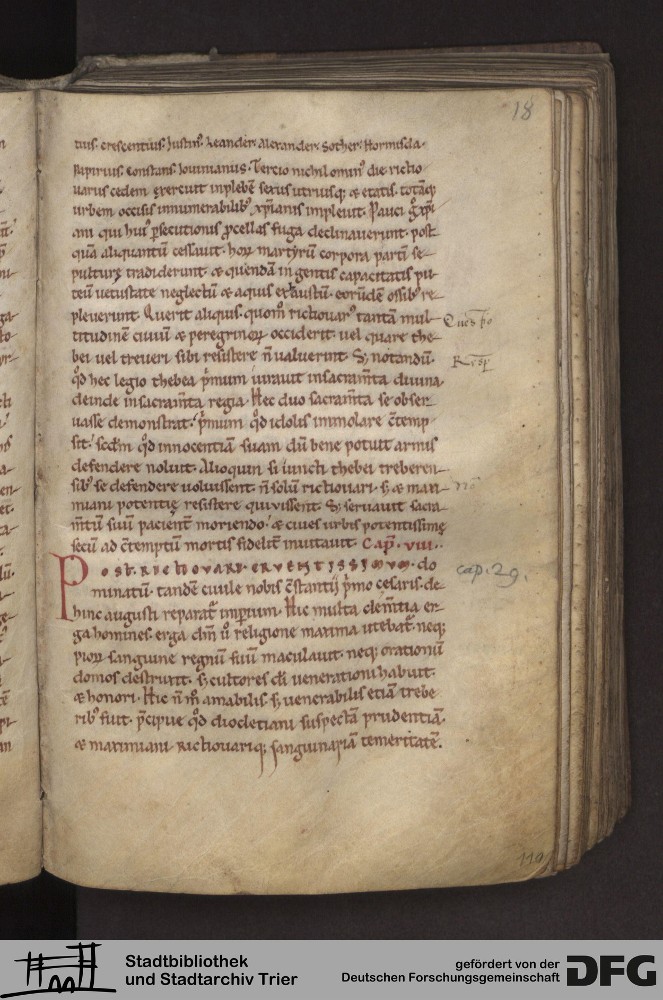 18
tius. crescentius. Justin᷒. Leander. Alexander. Sother. Hormisda.
papirius. constans. Iouinianus. Tercio nichilomin᷒ die. rictio
uarus cedem exercuit inplebē sexus utriusq; & etatis. totāq;
urbem occisis innumerabilib᷒ xp̄ianis impleuit. Pauci g̊ xp̄i
ani qui hui᷒ p̄secutionis ꝓcellas fuga declinauerunt. post
quā aliquantū cessauit. hoꝝ martyrū corpora partī se
pulturę tradiderunt. & quendā ingentis capacitatis pu
teū uetustate neglectū & aquis exhaustū. eorūdē ossib᷒ re
pleuerunt. Querit aliquis. quom̄ rictiouar᷒ tantā mul
titudinē ciuiū & peregrinoꝝ occiderit. uel quare the
bei uel treueri sibi resistere n̄ ualuerint. S; notandū.
qd̄ hec legio thebea p̄mum iurauit insacram̄ta diuina.
deinde insacram̄ta regia. Hec duo sacram̄ta se obser
uasse demonstrat. p̄mum qd̄ idolis immolare c̄temp
sit. scd̄m qd̄ innocentiā suam dū bene potuit armis
defendere noluit. Alioquin si iuncti thebei treberen
sib᷒ se defendere uoluissent. n̄ solū rictiouari. s; & maxi
miani potentię resistere quiuissent. S; seruauit sacra
m̄tū suū pacient̄ moriendo. & ciues urbis potentissimę
secū ad c̄temptū mortis fidelit̄ inuitauit. Cap̄. VIII.
Post. RICTIOVARI. CRVENTISSIMVM. do
minatū. tandē ciuile nobis c̄stantij p̄mo cesaris. de
hinc augusti reparat̄ imperium. Hic multa clem̄tia er
ga homines. erga dm̄ ū religione maxima utebat̄. neq;
pioꝝ sanguine regnū suū maculauit. neq; orationū
domos destruxit. s; cultores di uenerationi habuit.
& honori. Hic n̄ m̄ amabilis. s; uenerabilis etiā trebe
rib᷒ fuit. p̄cipue qd̄ diocletiani suspectā prudentiā.
& maximiani Rictiouariq; sanguinariā temeritatē.
Resp̄
cap. 29.
110
Stadtbibliothek
und Stadtarchiv Trier
gefördert von der
Deutschen Forschungsgemeinschaft
DFG